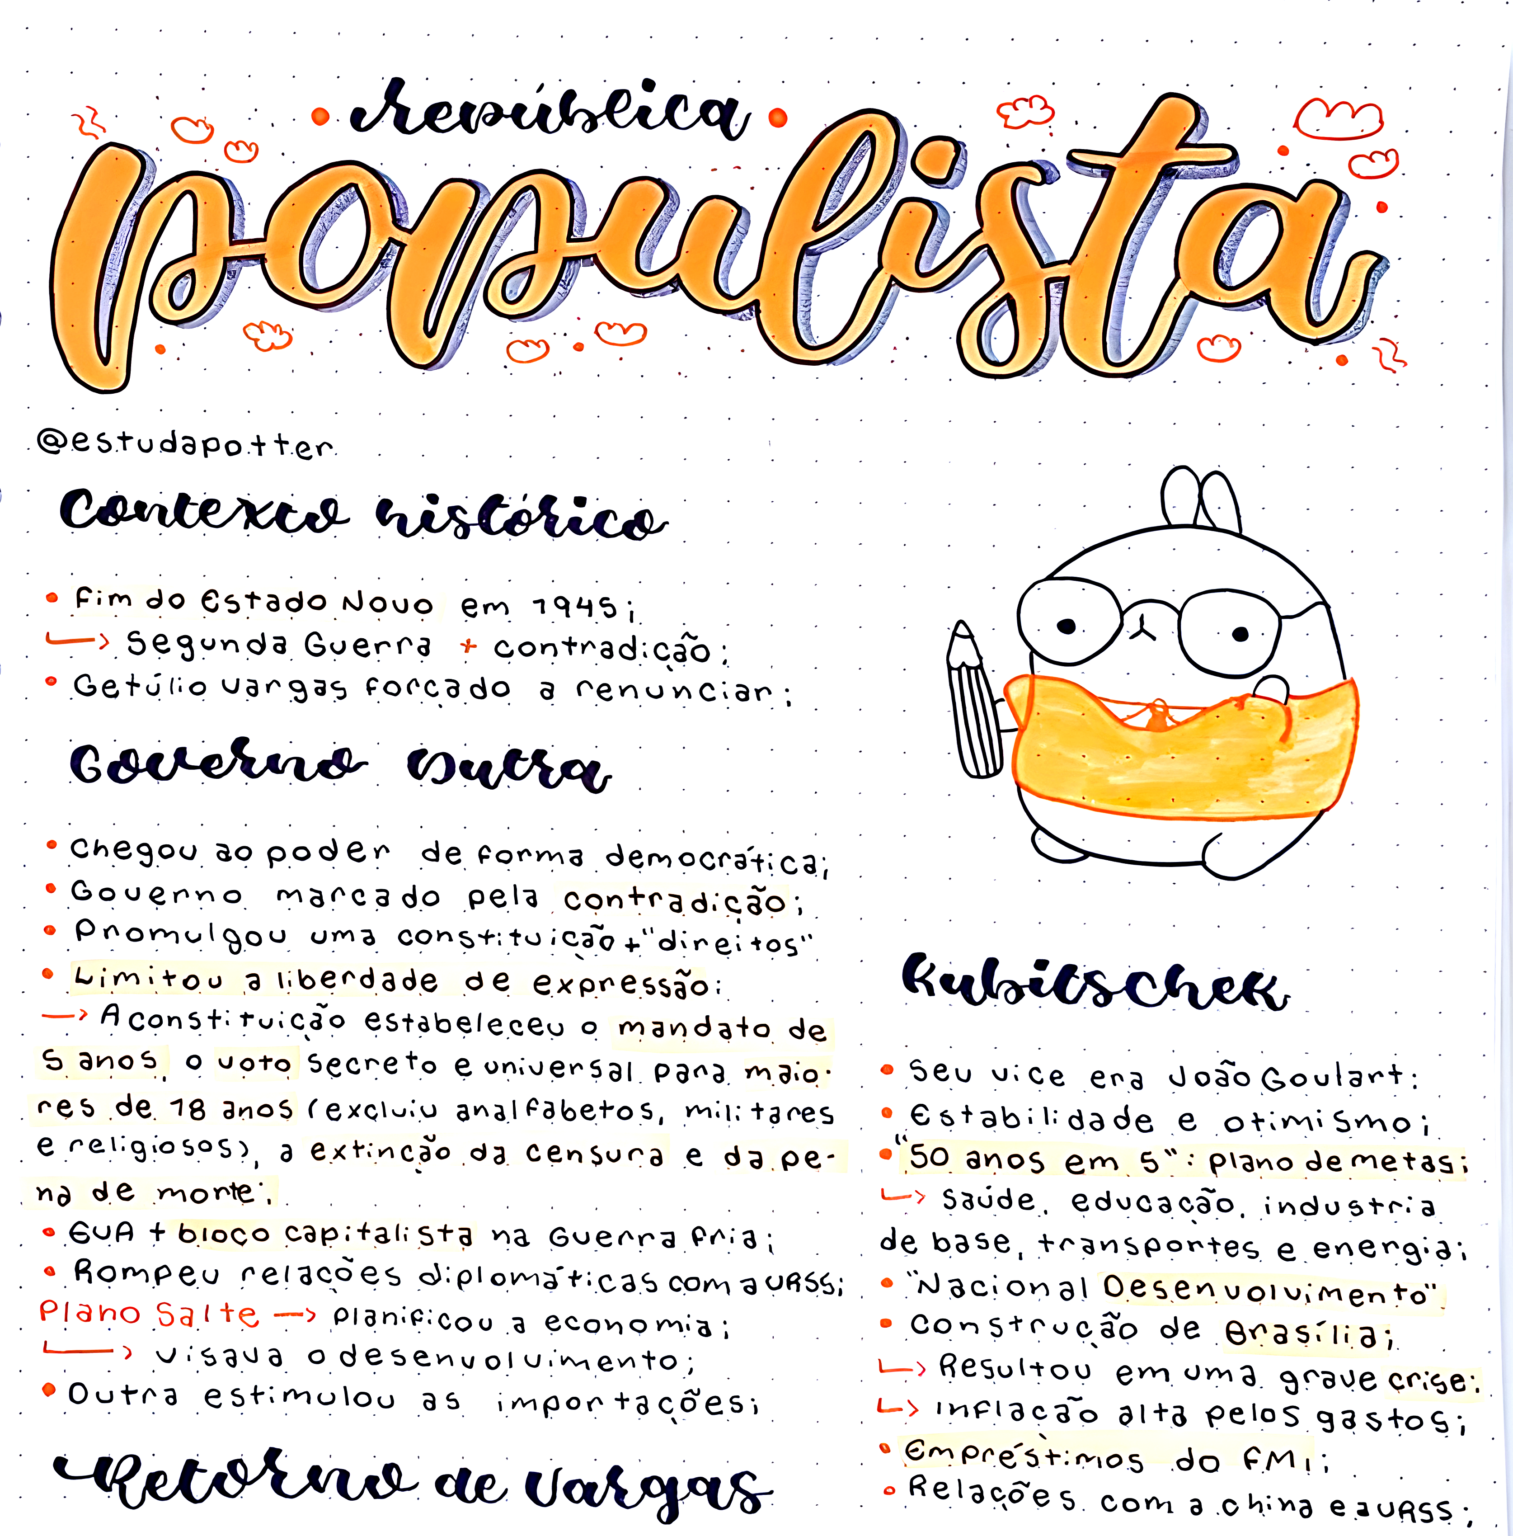 república
populista
@estudapotter
Contexto histórico
• Fim do Estado Novo em 1945;
↳ Segunda Guerra + contradição;
• Getúlio Vargas forçado a renunciar;
Governo Dutra
• Chegou ao poder de forma democrática;
• Governo marcado pela contradição;
• Promulgou uma constituição + "direitos"
• Limitou a liberdade de expressão;
→ A constituição estabeleceu o mandato de
5 anos, o voto secreto e universal para maio-
res de 18 anos (excluiu analfabetos, militares
e religiosos), a extinção da censura e da pe-
na de morte;
• EUA + bloco capitalista na Guerra Fria;
• Rompeu relações diplomáticas com a URSS;
Plano Salte → planificou a economia;
↳ visava o desenvolvimento;
• Dutra estimulou as importações;
Retorno de Vargas
Kubitschek
• Seu vice era João Goulart;
• Estabilidade e otimismo;
• "50 anos em 5": plano de metas;
↳ saúde, educação, industria
de base, transportes e energia;
• "Nacional Desenvolvimento"
• Construção de Brasília;
↳ Resultou em uma grave crise;
↳ Inflação alta pelos gastos;
• Empréstimos do FMI;
• Relações com a China e a URSS;